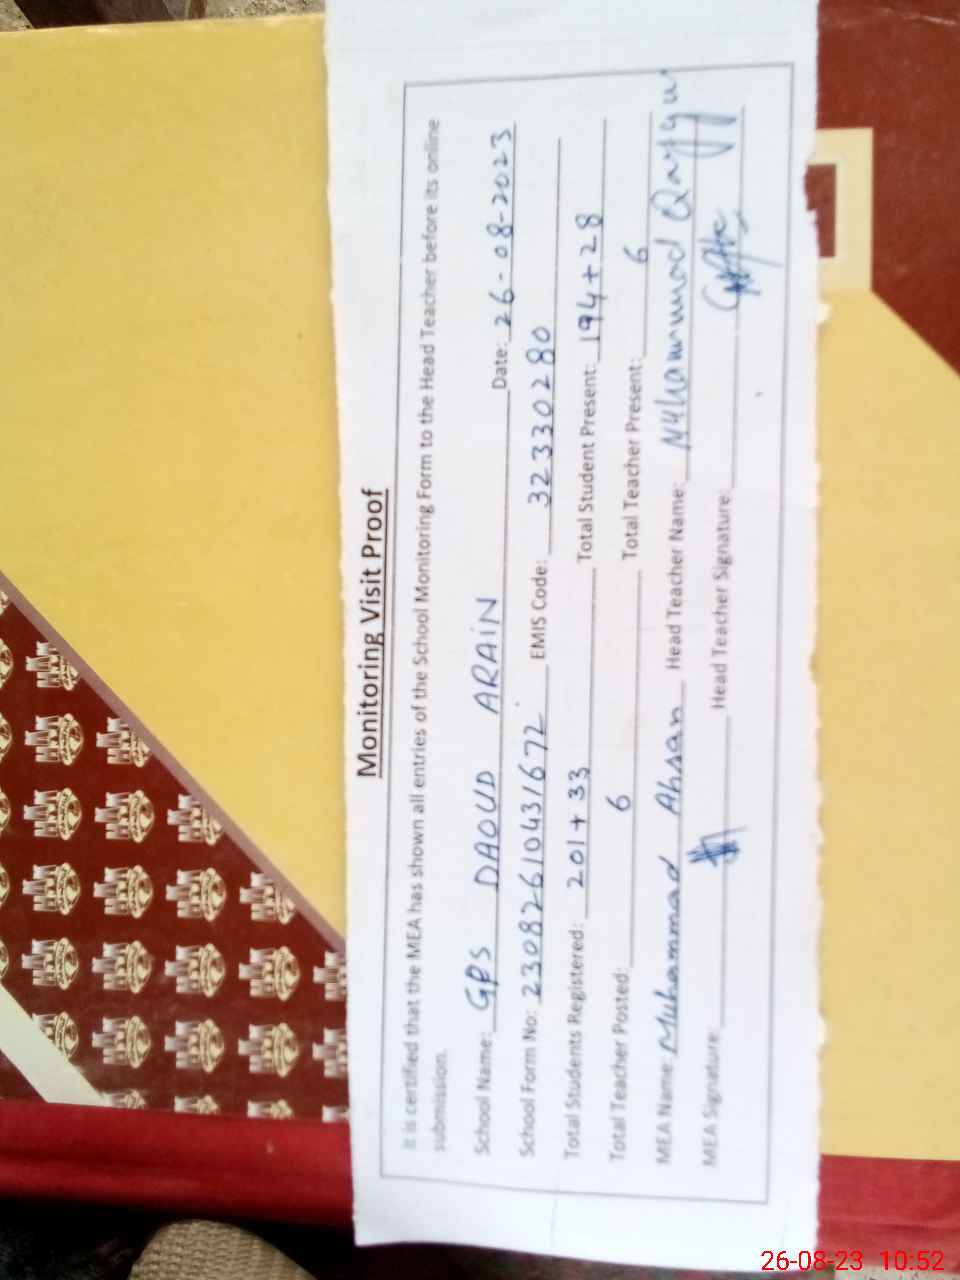 Monitoring Visit Proof
It is certified that the MEA has shown all entries of the School Monitoring Form to the Head Teacher before its online
submission.
School Name: GPS DAOUD ARAIN Date: 26-08-2023
School Form No: 23082610431672 EMIS Code: 32330280
Total Students Registered: 201+33 Total Student Present: 194+28
Total Teacher Posted: 6 Total Teacher Present: 6
MEA Name: Muhammad Ahsan Head Teacher Name: Muhammad Qayyu
MEA Signature: Head Teacher Signature:
26-08-23 10:52